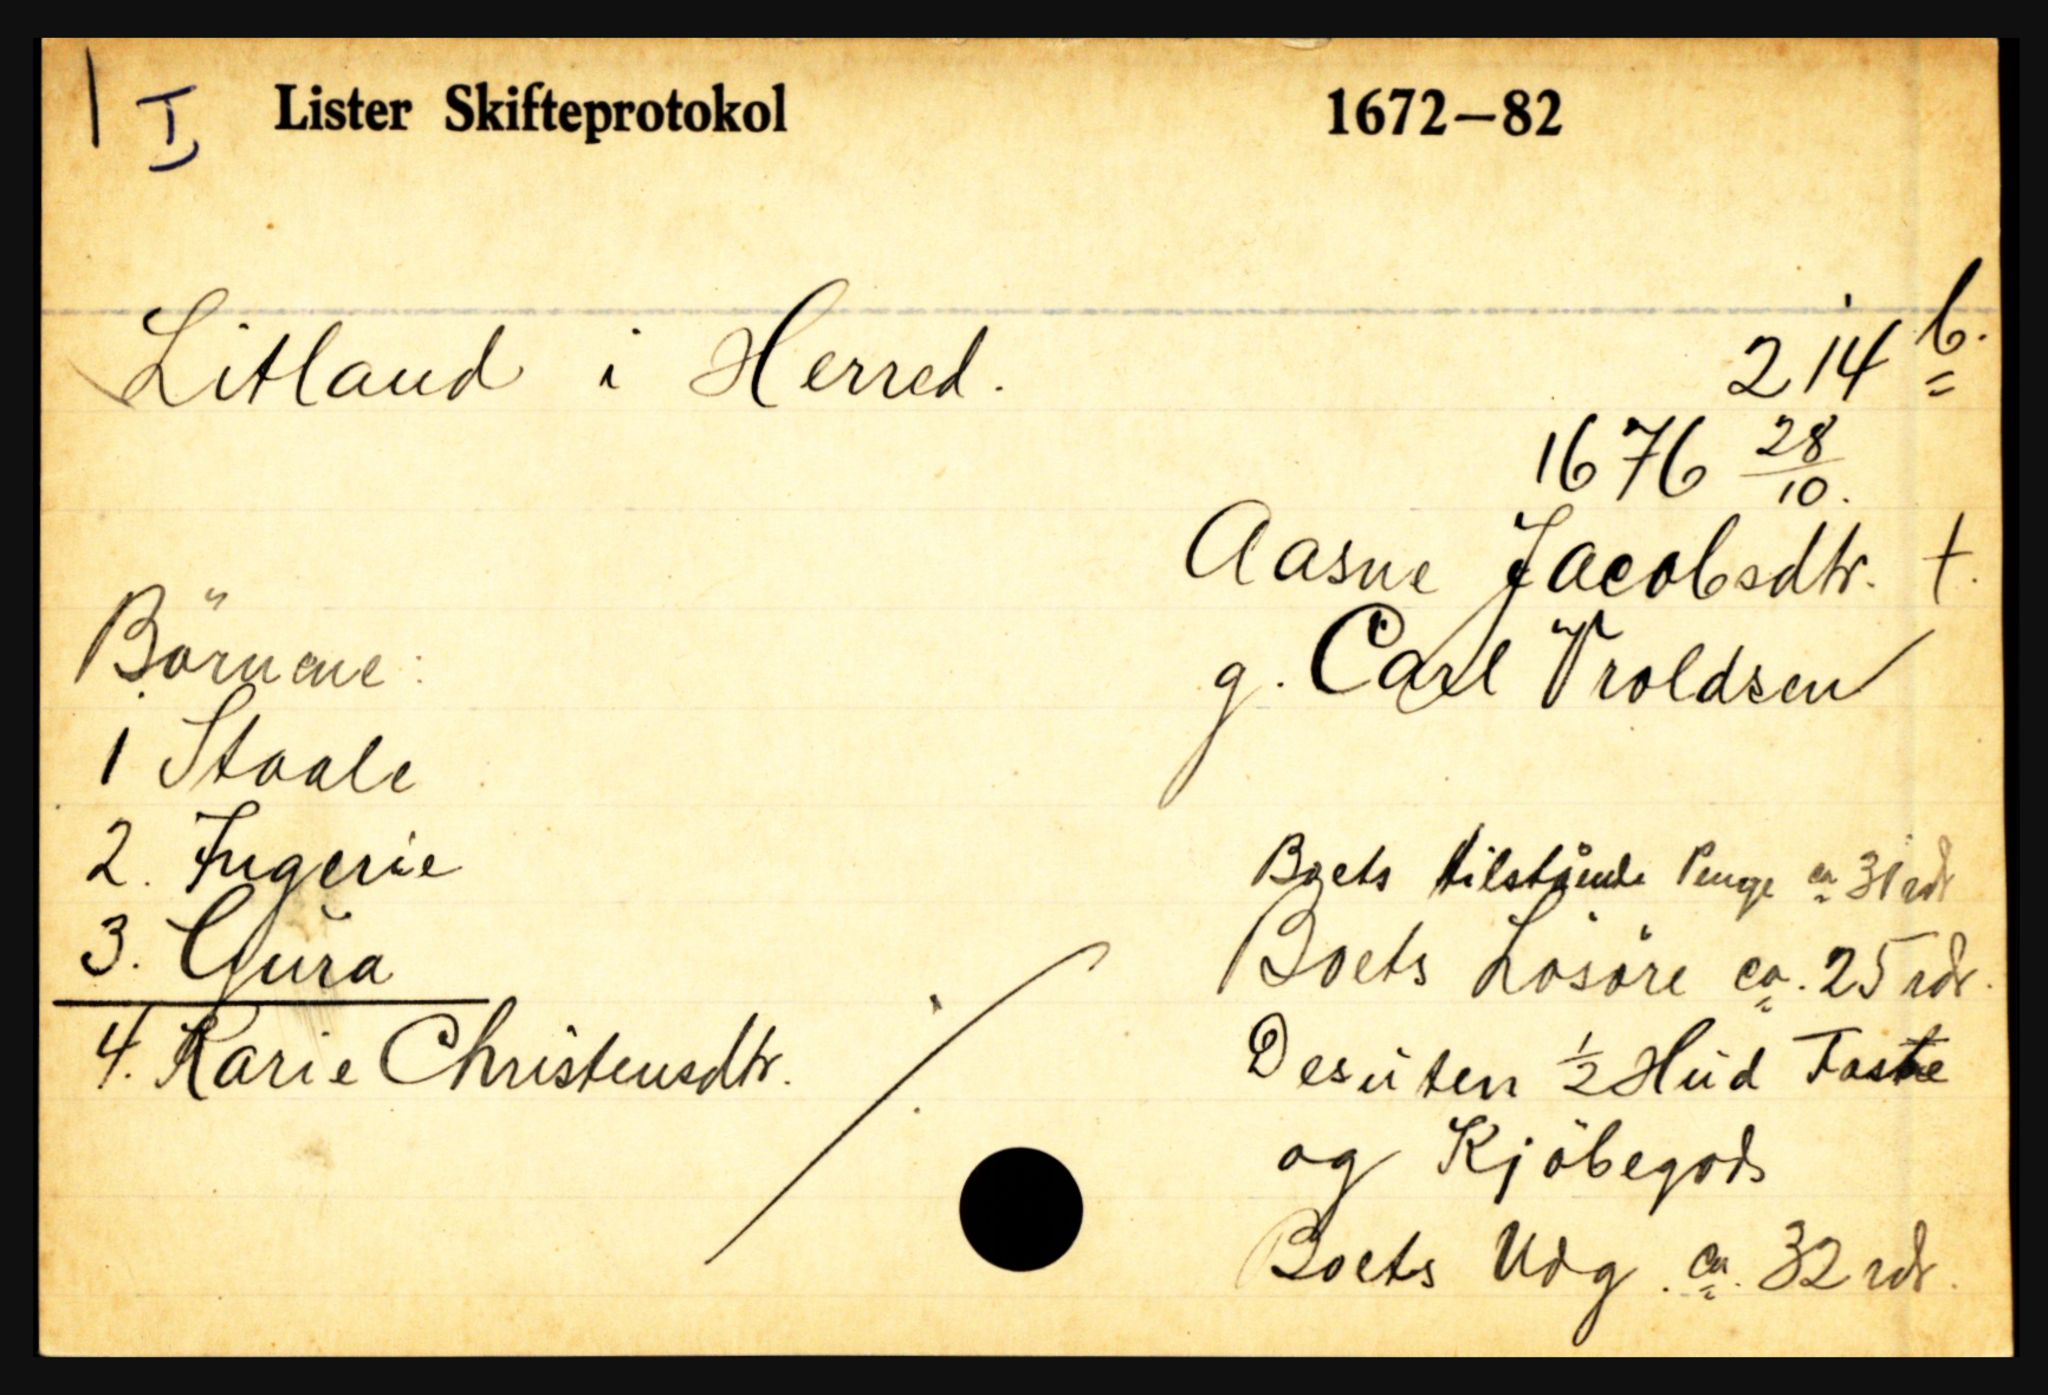 I Lister Skifteprotokol 1672—82
Litland i Herred. 214 b.
1676 28/10.
Aasne Jacobsdtr. †.
g. Carl Troldsen
Börnene:
1 Staale
2. Ingerie
3. Gura
4. Karie Christensdtr.
Boets tilstånde Penge ca 31 rdr
Boets Lösöre ca. 25 rdr.
Desuten 1/2 Hud Faste
og Kjöbegods
Boets Udg. ca. 32 rdr.